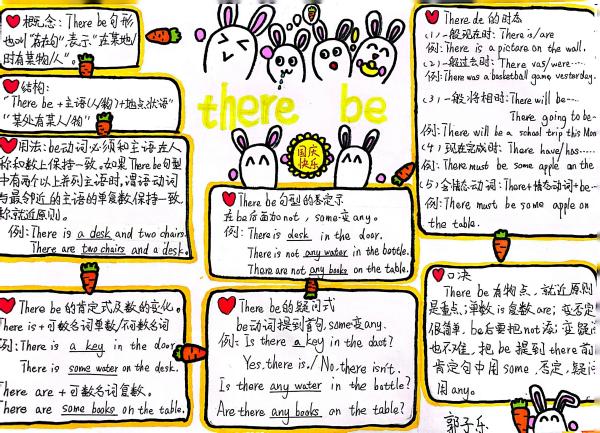 概念:There be句形
也叫"存在句",表示"在某地/
时有某物/人"。
结构:
"There be +主语(人/物)+地点状语"
"某处有某人/物"
用法:be动词必须和主语在人
称和数上保持一致。如果There be句型
中有两个以上并列主语时,谓语动词
与最邻近的主语的单复数保持一致。
称就近原则。
例:There is a desk and two chairs
There are two chairs and a desk.
There be的肯定式及数的变化。
There is+可数名词单数/不可数名词
例:There is a key in the door.
There is some water on the desk.
There are +可数名词复数。
There are some books on the table.
there be
国庆
快乐
There be句型的否定示
在be后面加not,some变any。
例:There is desk in the door.
There is not any water in the bottle.
There are not any books on the table.
There be的疑问式
be动词提到首句,some变any.
例:Is there a key in the doot?
Yes,there is./No,there isn't.
Is there any water in the bottle?
Are there any books on the table?
There de的时态
(1)一般现在时:There is/are
例:There is a picture on the wall.
(2)一般过去时:There vas/were……
例:There was a basketball game yesterday.
(3)一般将相时:There will be……
There going to be…
例:There will be a school trip this Mon
(4)现在完成时:There have/has……
例:There must be some apple on the
(5)含情态动词:There+情态动词+be…
例:There must be some apple on
the table.
口决
There be有物点,就近原则
是重点;单数is复数are;变否定
很简单,be后要把not添;变疑问
也不难,把be提到there前
肯定句中用some,否定,疑问
用any。
郭子乐